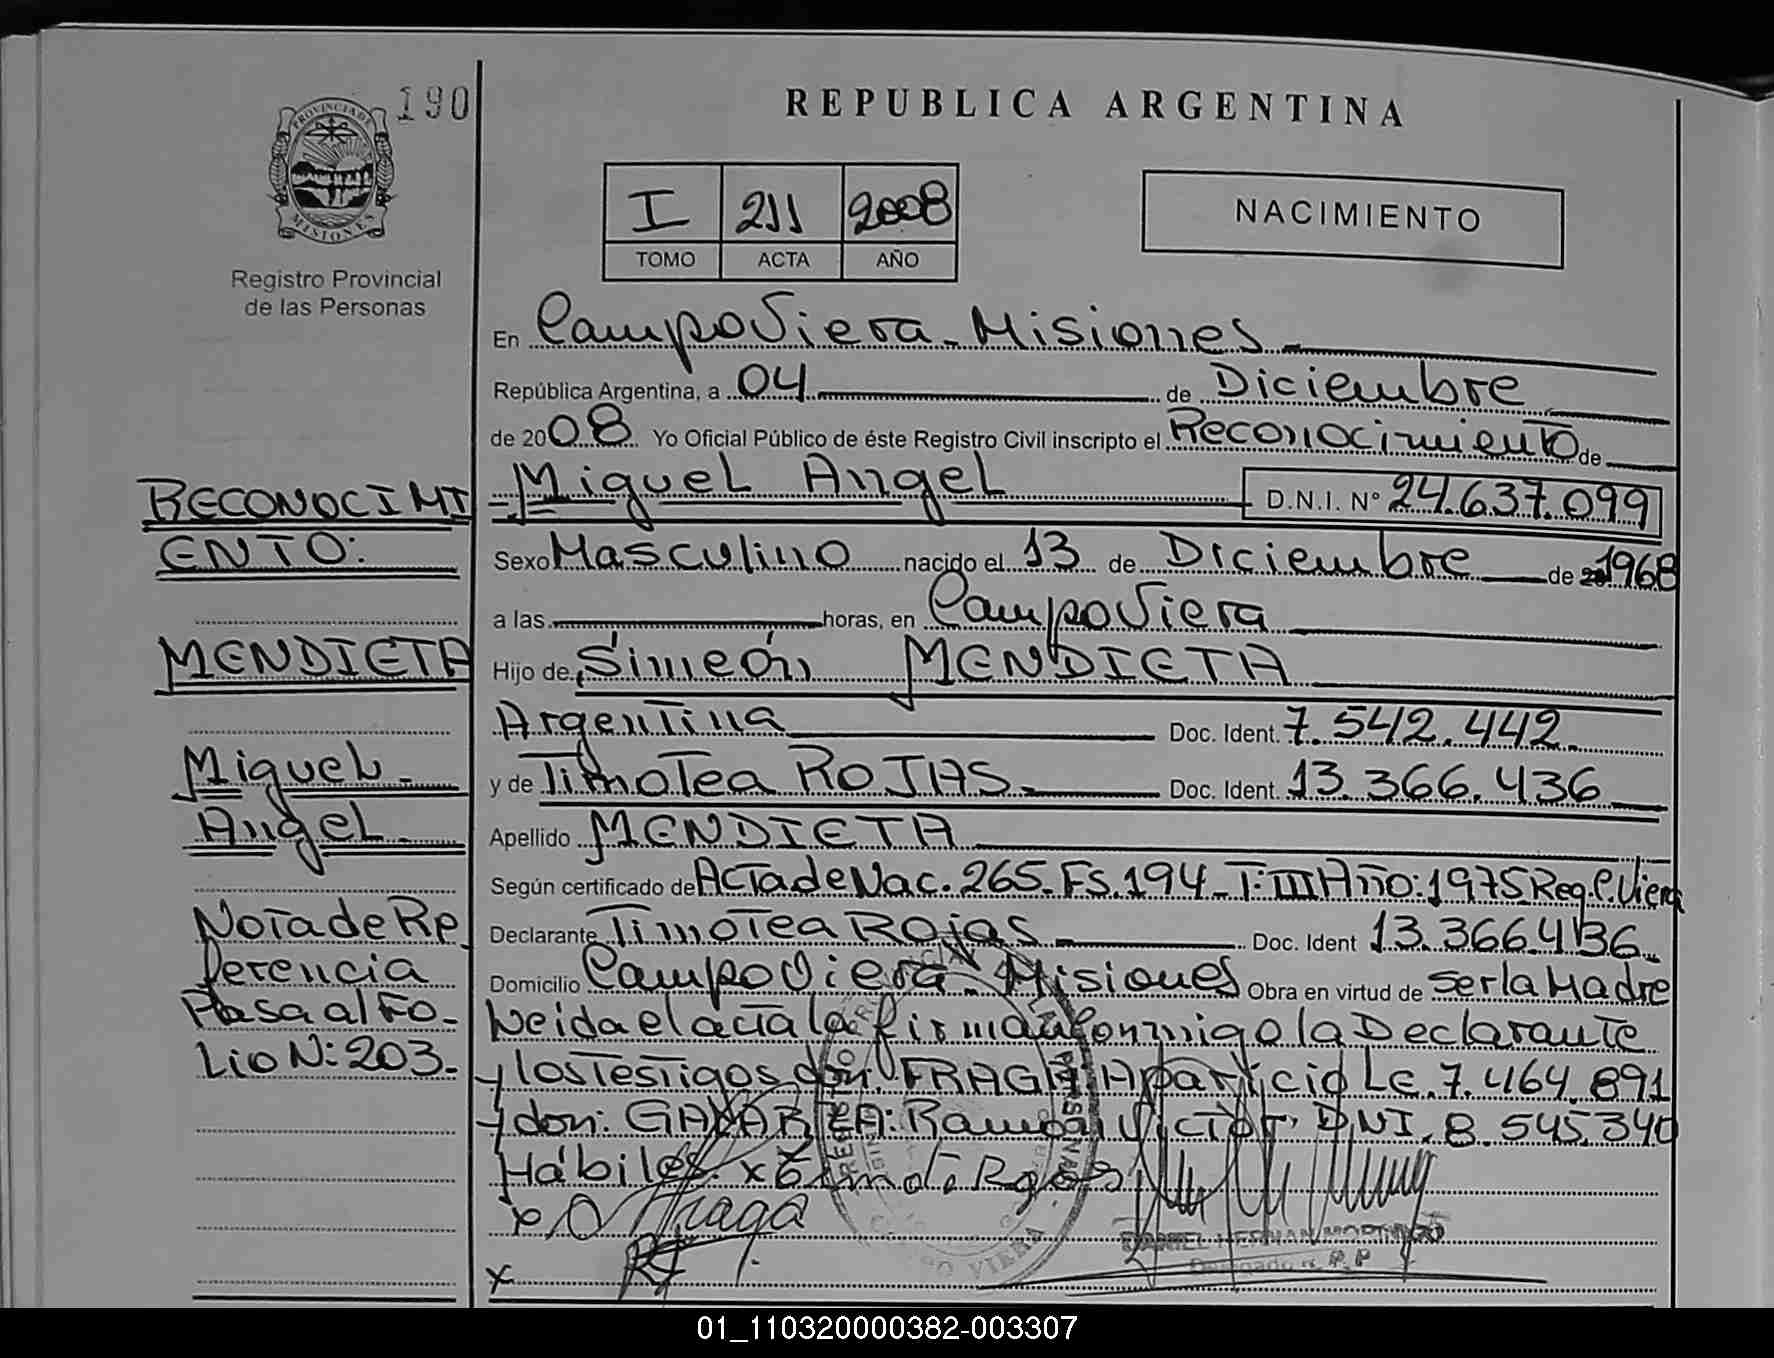 190
PROVINCIA DE
MISIONES
Registro Provincial
de las Personas
REPUBLICA ARGENTINA
I 211 2008
TOMO ACTA AÑO
NACIMIENTO
En Campo Viera - Misiones
República Argentina, a 04 de Diciembre
de 2008 Yo Oficial Público de éste Registro Civil inscripto el Reconocimiento de
Miguel Angel D.N.I. N° 24.637.099
Sexo Masculino nacido el 13 de Diciembre de 1968
a las horas, en Campo Viera
Hijo de Simeón MENDIETA
Argentina Doc. Ident. 7.542.442
y de Timotea ROJAS Doc. Ident. 13.366.436
Apellido MENDIETA
Según certificado de Acta de Nac. 265. Fs. 194 - T: III Año: 1975 Reg. C. Viera
Declarante Timotea Rojas Doc. Ident 13.366.436
Domicilio Campo Viera - Misiones Obra en virtud de ser la Madre
Leida el acta la firman conmigo la Declarante
y los Testigos don: FRAGA Aparicio Lc. 7.464.891
y don: Ramon Victor DNI. 8.545.340
Hábiles. x
x Fraga
x
DANIEL HERNAN
Delegado R.P.P
REGISTRO
VIERA
RECONOCIMI
ENTO:
MENDIETA
Miguel
Angel
Nota de Re
ferencia
Pasa al Fo-
lio N: 203.
01_110320000382-003307